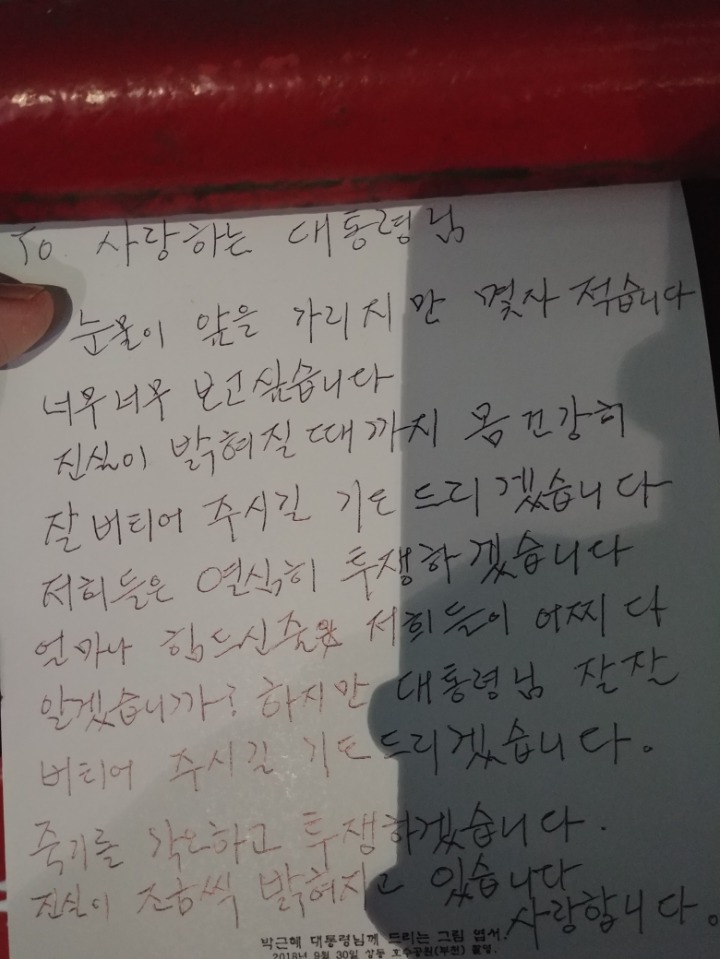 To 사랑하는 대통령님
눈물이 앞을 가리지만 몇자 적습니다
너무너무 보고싶습니다
진실이 밝혀질때까지 몸건강히
잘버티어 주시길 기도드리겠습니다
저희들은 열심히 투쟁하겠습니다
얼마나 힘드신줄 저희들이 어찌 다
알겠습니까? 하지만 대통령님 잘잘
버티어 주시길 기도드리겠습니다.
죽기를 각오하고 투쟁하겠습니다.
진실이 조금씩 밝혀지고 있습니다
사랑합니다.
박근혜 대통령님께 드리는 그림 엽서.
2018년 9월 30일 상동 호수공원(부천) 촬영.